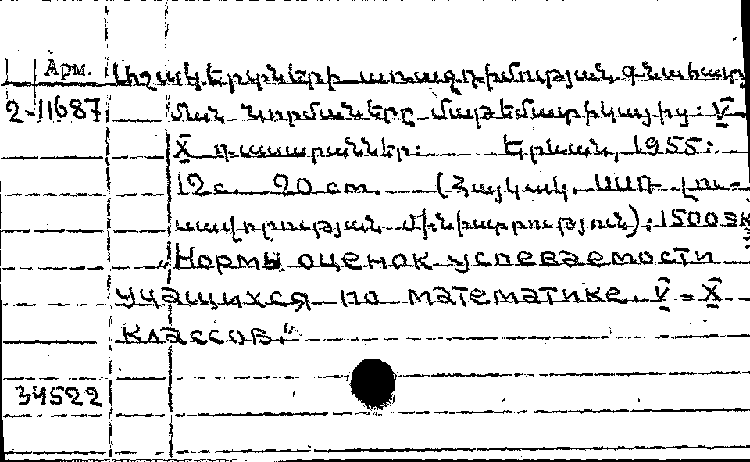 Арм. Աշակերտների առաջադիմության գնահատ
2-11687 ման նորմաները մաթեմատիկայից: V-
X դասարաններ: Երևան, 1955:
12с. 20 cm. (Հայկակ. ՍՍՌ լու-
սավորության մինիստրություն); 1500 эк
„Нормы оценок успеваемости
учащихся по математике. V-X
классов.“
34522